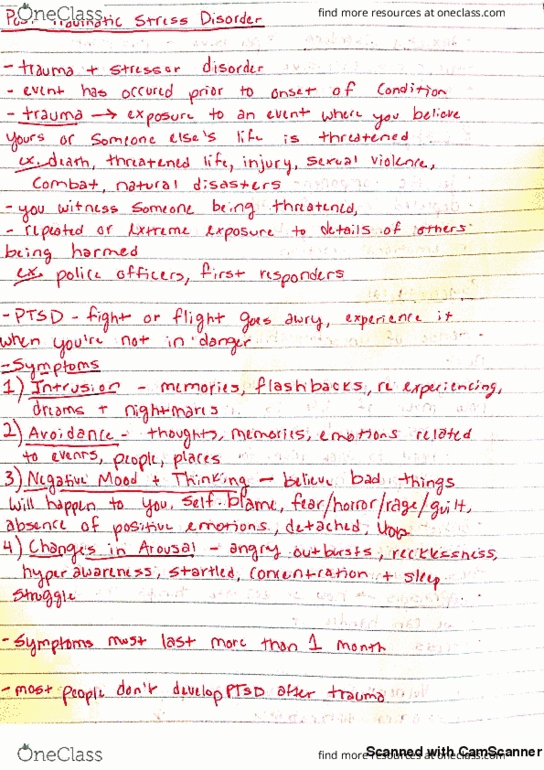 OneClass
find more resources at oneclass.com
Post Traumatic Stress Disorder
- trauma + stressor disorder
- event has occured prior to onset of condition
- trauma → exposure to an event where you believe
yours or someone else's life is threatened
ex. death, threatened life, injury, sexual violence,
combat, natural disasters
- you witness someone being threatened,
- repeated or extreme exposure to details of others
being harmed
ex. police officers, first responders
- PTSD - fight or flight goes awry, experience it
when you're not in danger
- Symptoms
1) Intrusion - memories, flashbacks, re experiencing,
dreams + nightmares
2) Avoidance - thoughts, memories, emotions related
to events, people, places
3) Negative Mood + Thinking - believe bad things
will happen to you, self-blame, fear/horror/rage/guilt,
absence of positive emotions, detached,
4) Changes in Arousal - angry outbursts, recklessness,
hyper awareness, startled, concentration + sleep
struggle
- symptoms must last more than 1 month
- most people don't develop PTSD after trauma
OneClass
find more resources at oneclass.com
Scanned with CamScanner